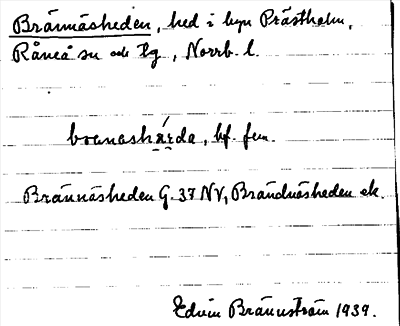 Brännäsheden, hed i byn Prästholm,
Råneå sn och tg, Norrb. l.
bräna​shä́rda, bf. fem.
Brännäsheden G. 37 NV, Brändnäsheden ek.
Edvin Brännström 1939.